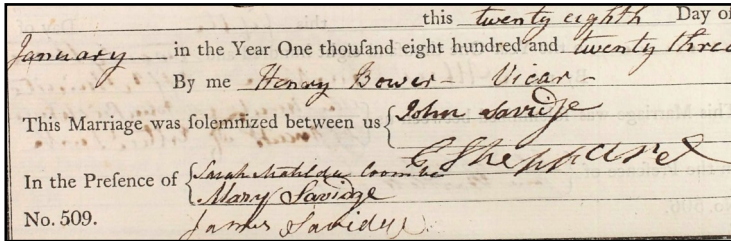 this twenty eighth Day of
January in the Year One thousand eight hundred and twenty three
By me Henry Bower Vicar
This Marriage was solemnized between us { John Savidge
E Sheppard
In the Presence of { Sarah Matilda Coombe
Mary Savidge
No. 509. James Savidge